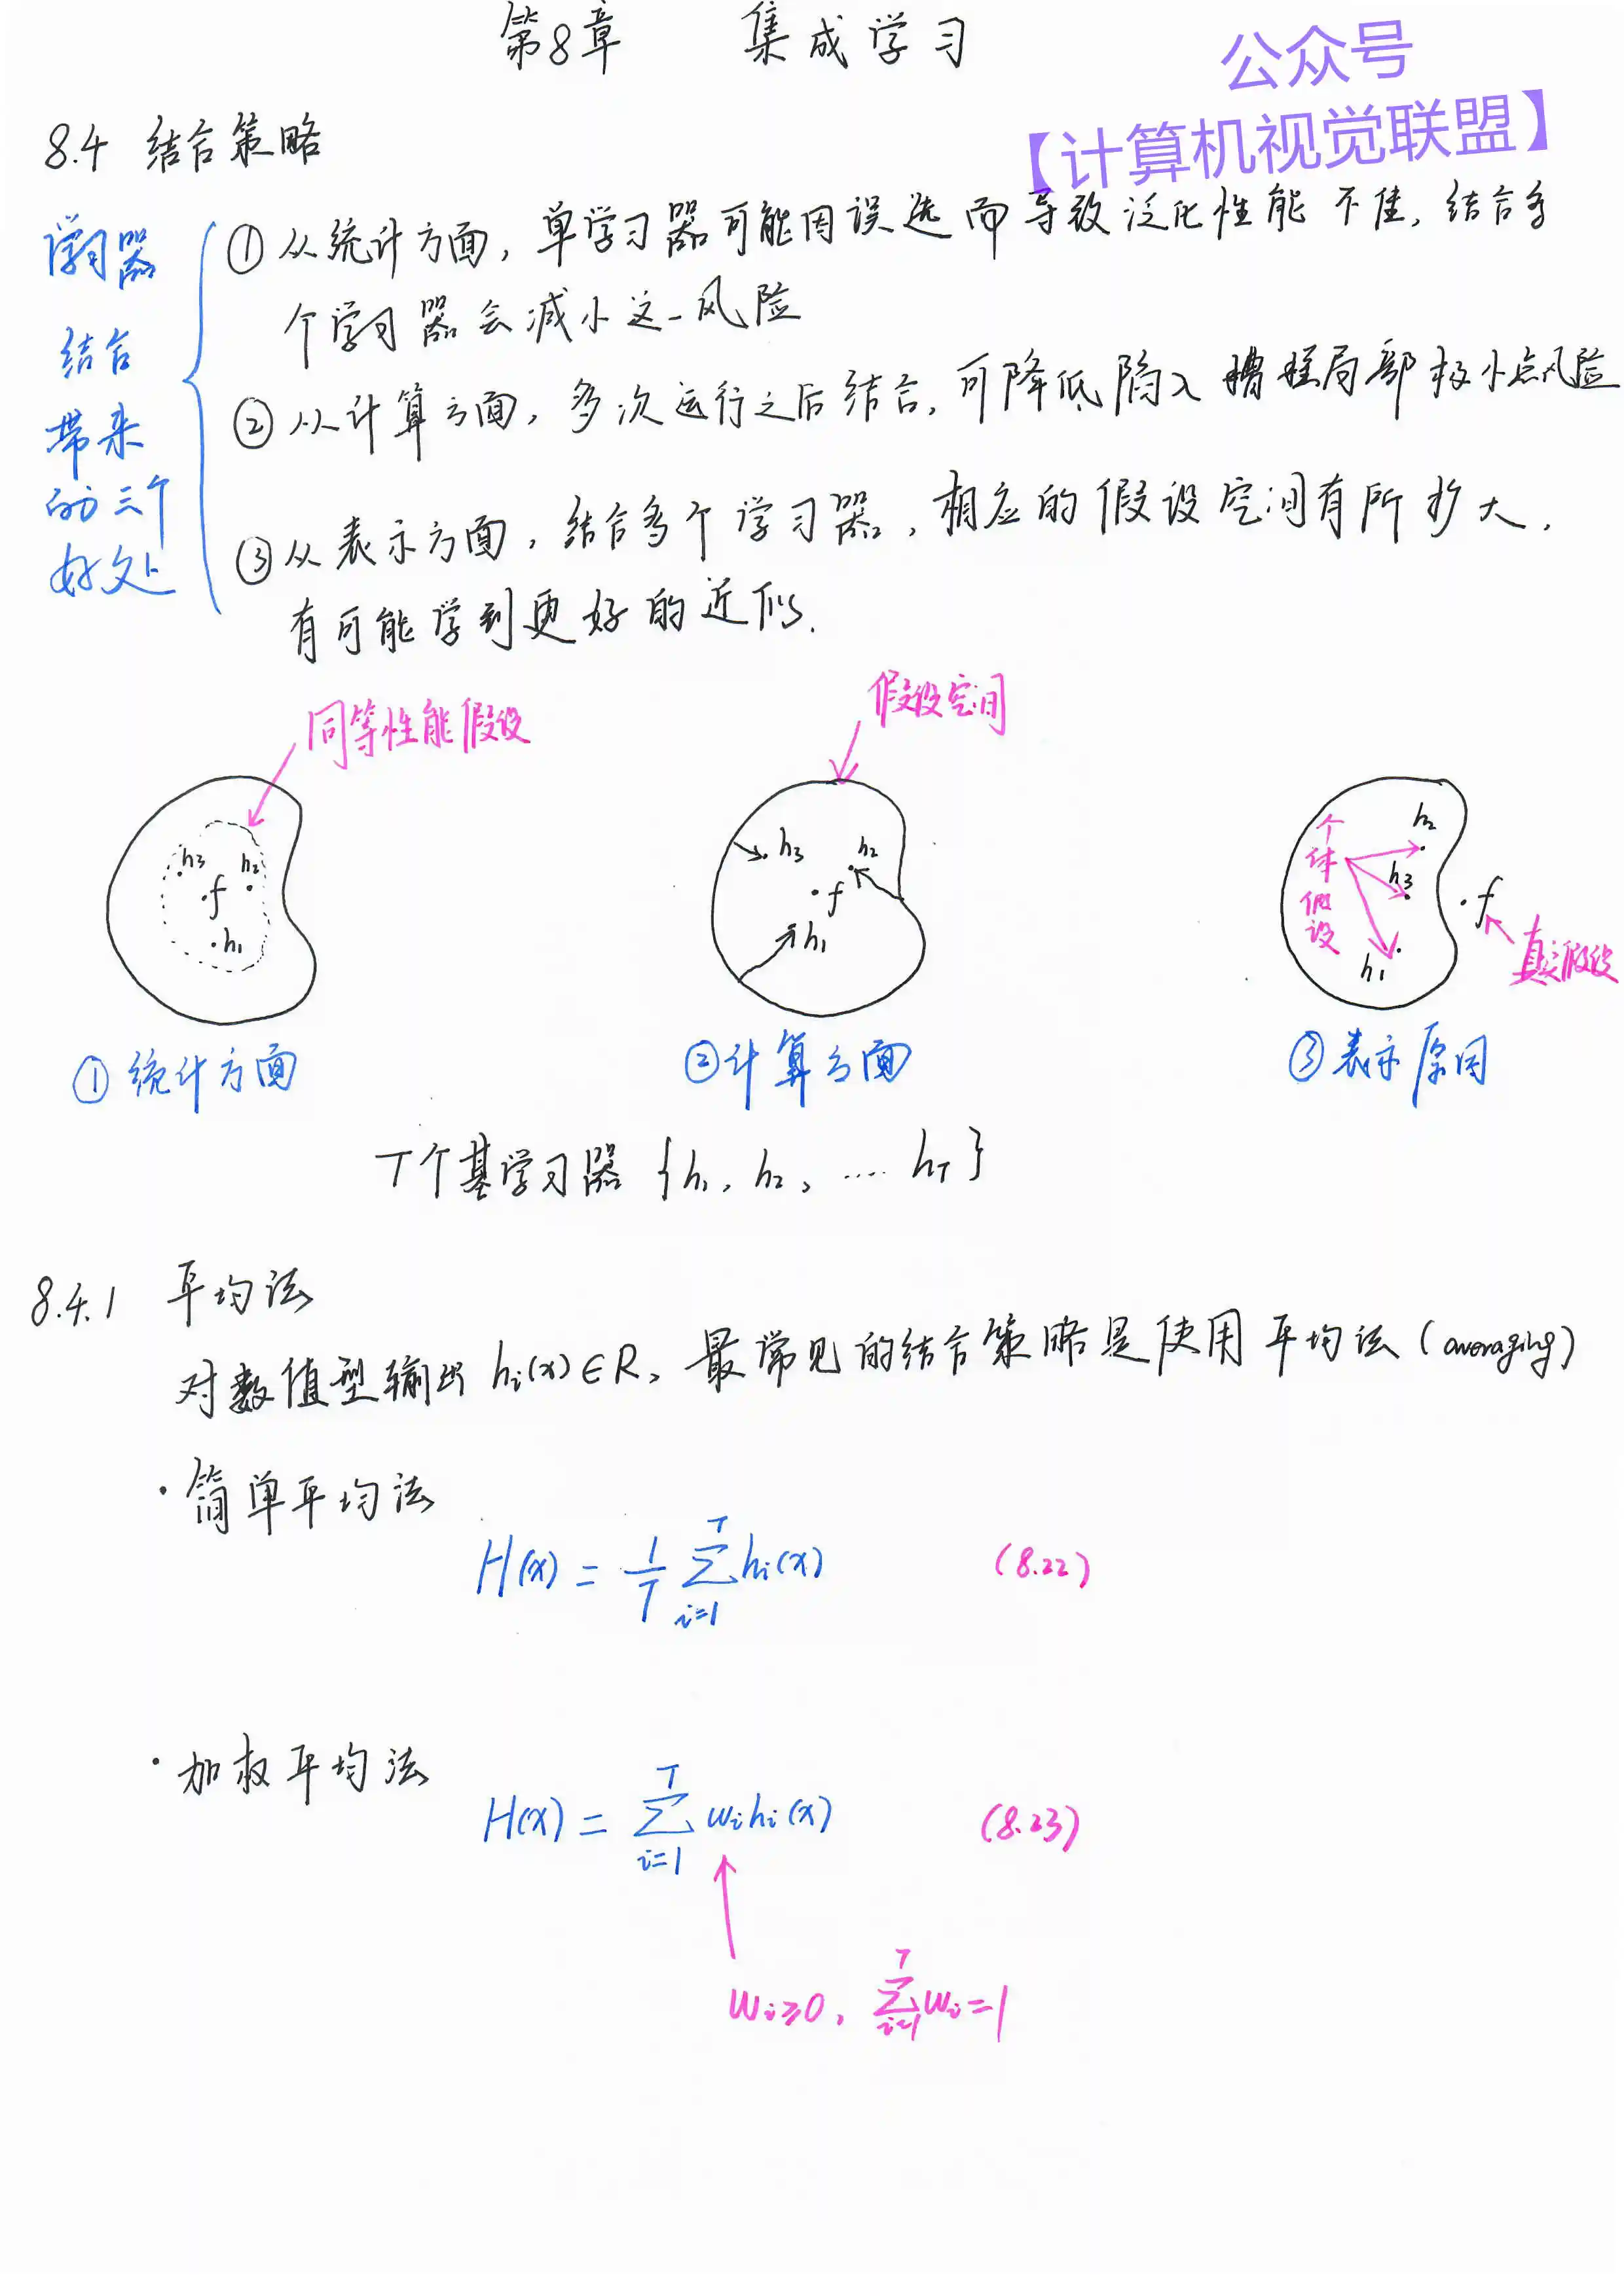 第8章 集成学习
公众号
【计算机视觉联盟】
8.4 结合策略
学习器
结合
带来
的三个
好处
①从统计方面,单学习器可能因误选而导致泛化性能不佳,结合多
个学习器会减小这一风险
②从计算方面,多次运行之后结合,可降低陷入糟糕局部极小点风险
③从表示方面,结合多个学习器,相应的假设空间有所扩大,
有可能学到更好的近似.
同等性能假设
假设空间
h₃ h₂
f
h₁
h₃ h₂
f
h₁
个体假设
h₂
h₃
h₁
f
真实假设
①统计方面
②计算方面
③表示原因
T个基学习器 {h₁, h₂, …. h_T}
8.4.1 平均法
对数值型输出 hᵢ(x)∈R, 最常见的结合策略是使用平均法(averaging)
·简单平均法
H(x) = 1/T ∑_{i=1}^{T} hᵢ(x) (8.22)
·加权平均法
H(x) = ∑_{i=1}^{T} wᵢhᵢ(x) (8.23)
wᵢ≥0, ∑_{i=1}^{T} wᵢ=1